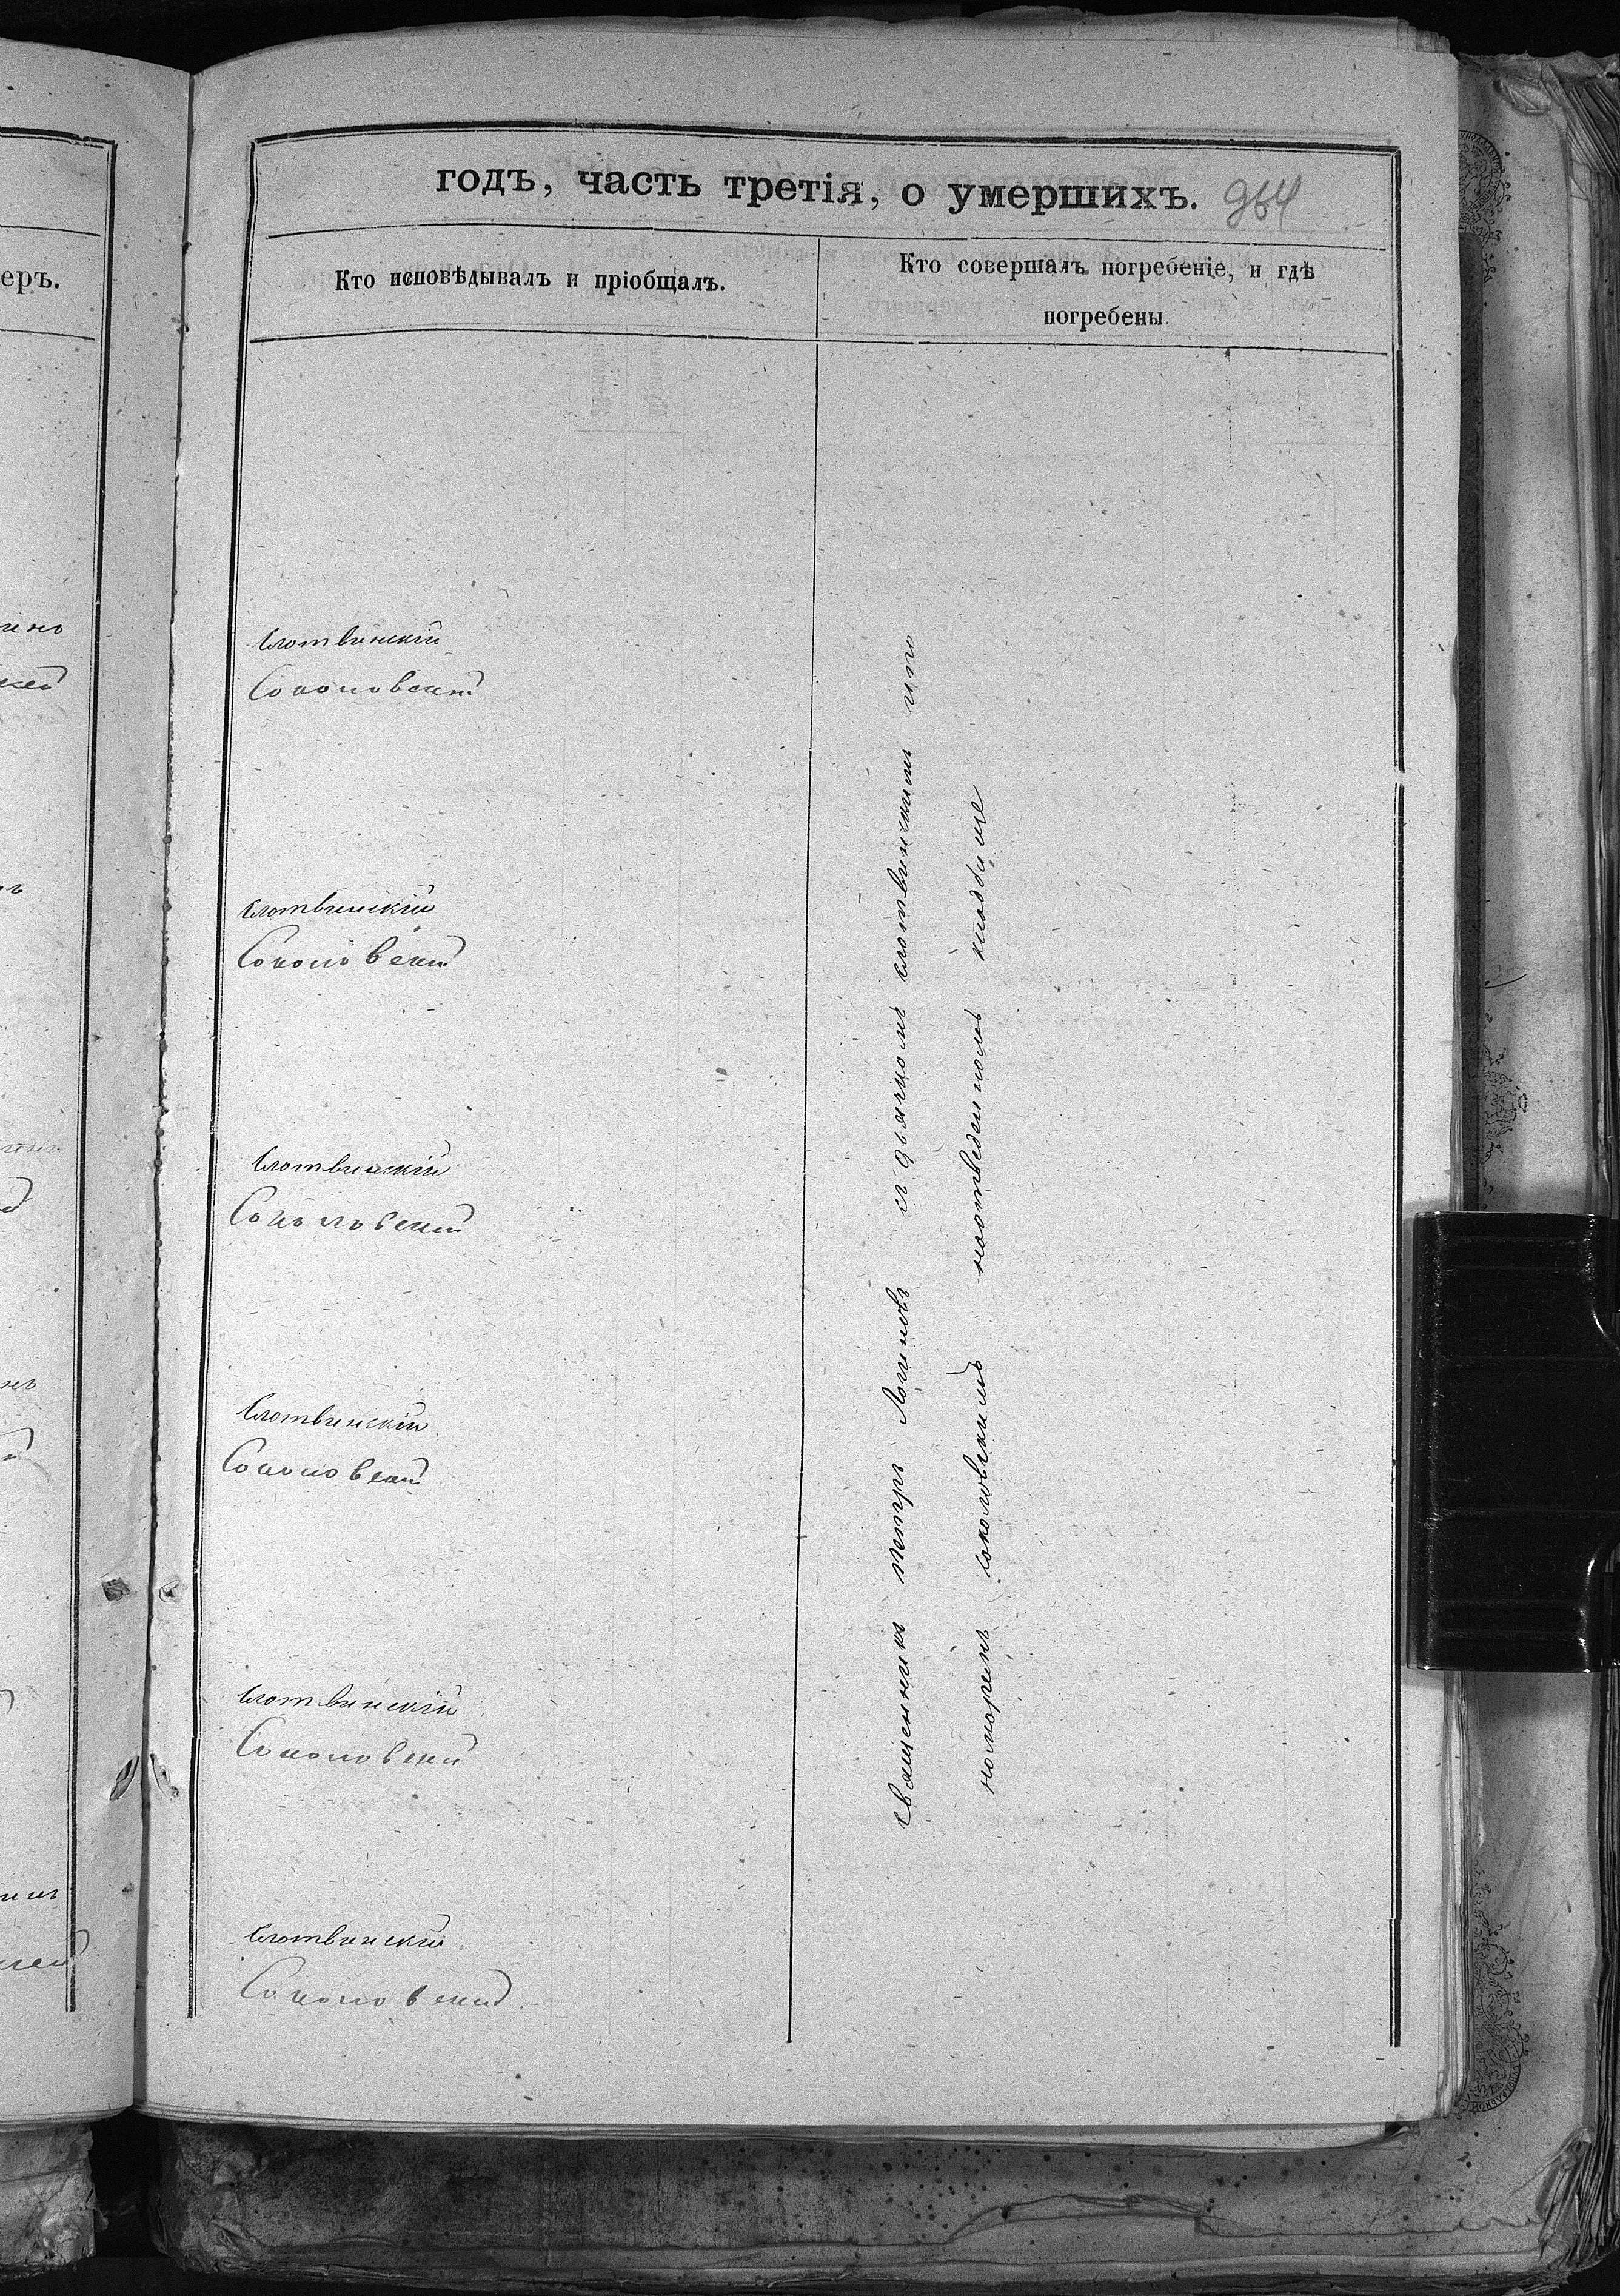 годъ, часть третія, о умершихъ. 954
еръ.
Кто исповѣдывалъ и пріобщалъ.
Кто совершалъ погребеніе, и гдѣ
погребены.
Слотвинскій
Соколовскій
Слотвинскій
Соколовскій
Слотвинскій
Соколовскій
Слотвинскій
Соколовскій
Слотвинскій
Соколовскій
Слотвинскій
Соколовскій
Священникъ Петръ Логиновъ съ дьячкомъ Слотвинскимъ и по
номоремъ Соколовскимъ наотведенномъ кладбище